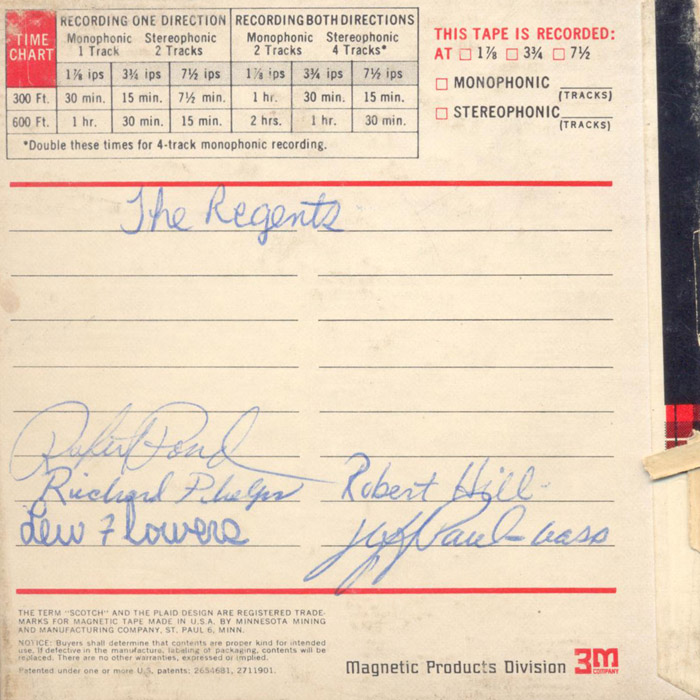 TIME CHART
RECORDING ONE DIRECTION RECORDING BOTH DIRECTIONS
Monophonic 1 Track Stereophonic 2 Tracks Monophonic 2 Tracks Stereophonic 4 Tracks*
1⅞ ips 3¾ ips 7½ ips 1⅞ ips 3¾ ips 7½ ips
300 Ft. 30 min. 15 min. 7½ min. 1 hr. 30 min. 15 min.
600 Ft. 1 hr. 30 min. 15 min. 2 hrs. 1 hr. 30 min.
*Double these times for 4-track monophonic recording.
THIS TAPE IS RECORDED:
AT □ 1⅞ □ 3¾ □ 7½
□ MONOPHONIC
(TRACKS)
□ STEREOPHONIC
(TRACKS)
The Regents
Robert Pond
Richard Phelps
Lew Flowers
Robert Hill
Jeff Paul - bass
THE TERM "SCOTCH" AND THE PLAID DESIGN ARE REGISTERED TRADE-
MARKS FOR MAGNETIC TAPE MADE IN U.S.A. BY MINNESOTA MINING
AND MANUFACTURING COMPANY, ST. PAUL 6, MINN.
NOTICE: Buyers shall determine that contents are proper kind for intended
use. If defective in the manufacture, labeling or packaging, contents will be
replaced. There are no other warranties, expressed or implied.
Patented under one or more U.S. patents: 2654681, 2711901.
Magnetic Products Division 3M
COMPANY